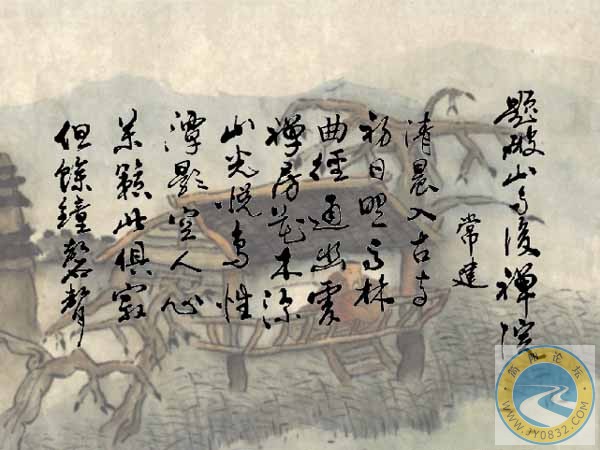 題破山寺後禪院
常建
清晨入古寺
初日照高林
曲徑通幽處
禪房花木深
山光悅鳥性
潭影空人心
萬籟此俱寂
但餘鐘磬聲
简阳论坛
WWW.JY0832.COM